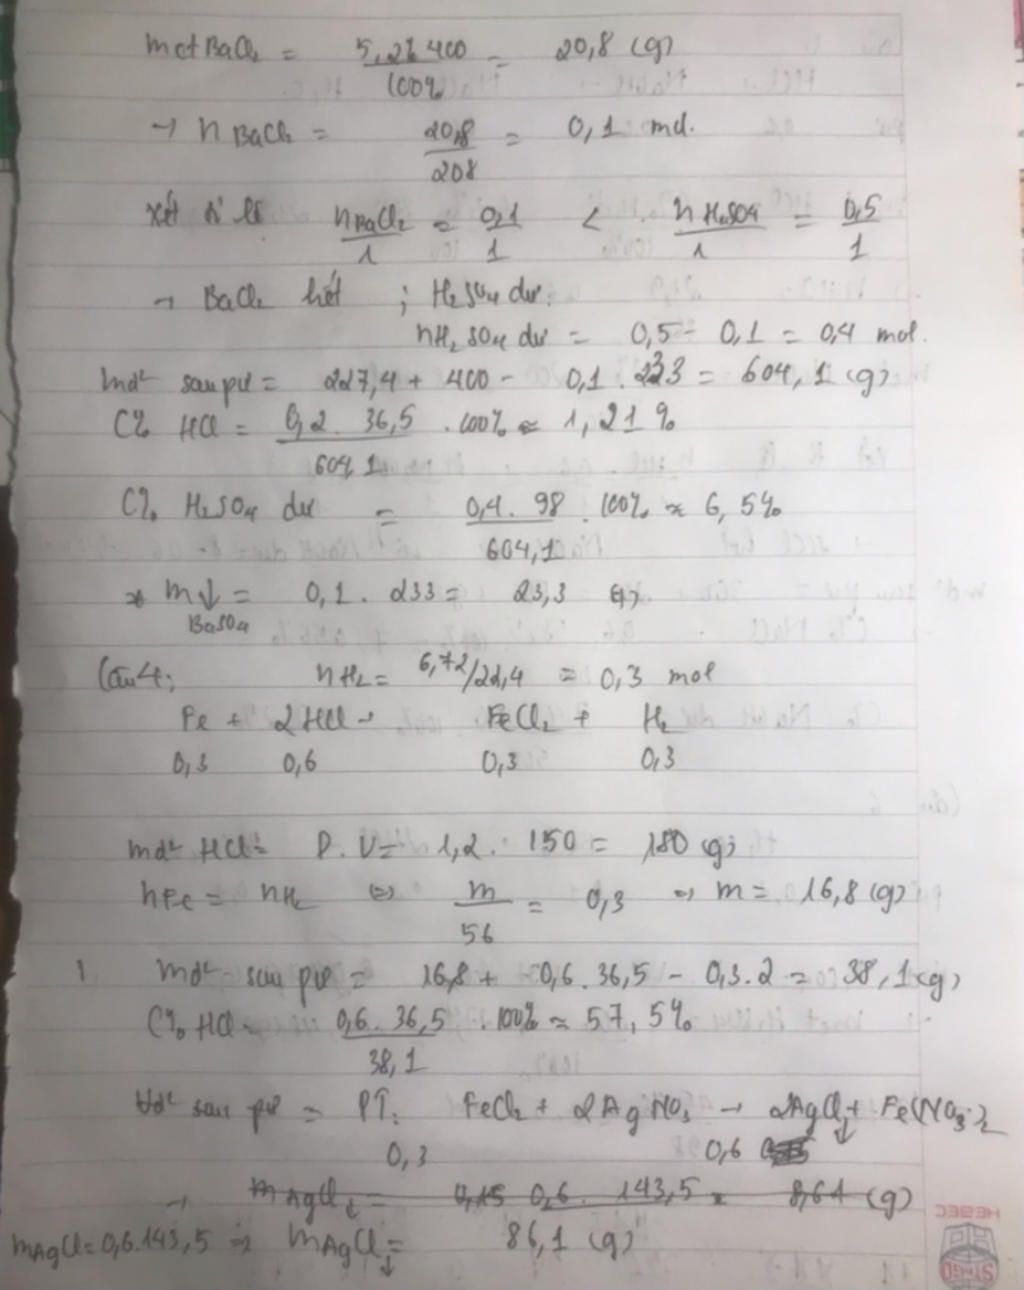 mct BaCl₂ = 5,2 . 400 / 100% = 20,8 (g)
→ n BaCl₂ = 20,8 / 208 = 0,1 mol.
xét tỉ lệ nBaCl₂ / 1 = 0,1 / 1 < n H₂SO₄ / 1 = 0,5 / 1
→ BaCl₂ hết ; H₂SO₄ dư.
nH₂SO₄ dư = 0,5 - 0,1 = 0,4 mol.
md² sau pư = 227,4 + 400 - 0,1 . 233 = 604,1 (g)
C% HCl = 0,2 . 36,5 / 604,1 . 100% ≈ 1,21%
C% H₂SO₄ dư = 0,4 . 98 / 604,1 . 100% ≈ 6,5%
* m↓ BaSO₄ = 0,1 . 233 = 23,3 (g)
Câu 4: nH₂ = 6,72/22,4 = 0,3 mol
Fe + 2HCl → FeCl₂ + H₂
0,3 0,6 0,3 0,3
md² HCl = D.V = 1,2 . 150 = 180 (g)
nFe = nH₂ ⇔ m / 56 = 0,3 ⇒ m = 16,8 (g)
md² sau pư = 16,8 + 0,6 . 36,5 - 0,3 . 2 = 38,1 (g)
C% HCl = 0,6 . 36,5 / 38,1 . 100% ≈ 57,5%
sau pư = PT: FeCl₂ + 2AgNO₃ → 2AgCl↓ + Fe(NO₃)₂
0,3 0,6
→ mAgCl↓ = 0,15 0,6 . 143,5 = 8,61 (g)
mAgCl = 0,6.143,5 ⇒ mAgCl↓ = 86,1 (g)